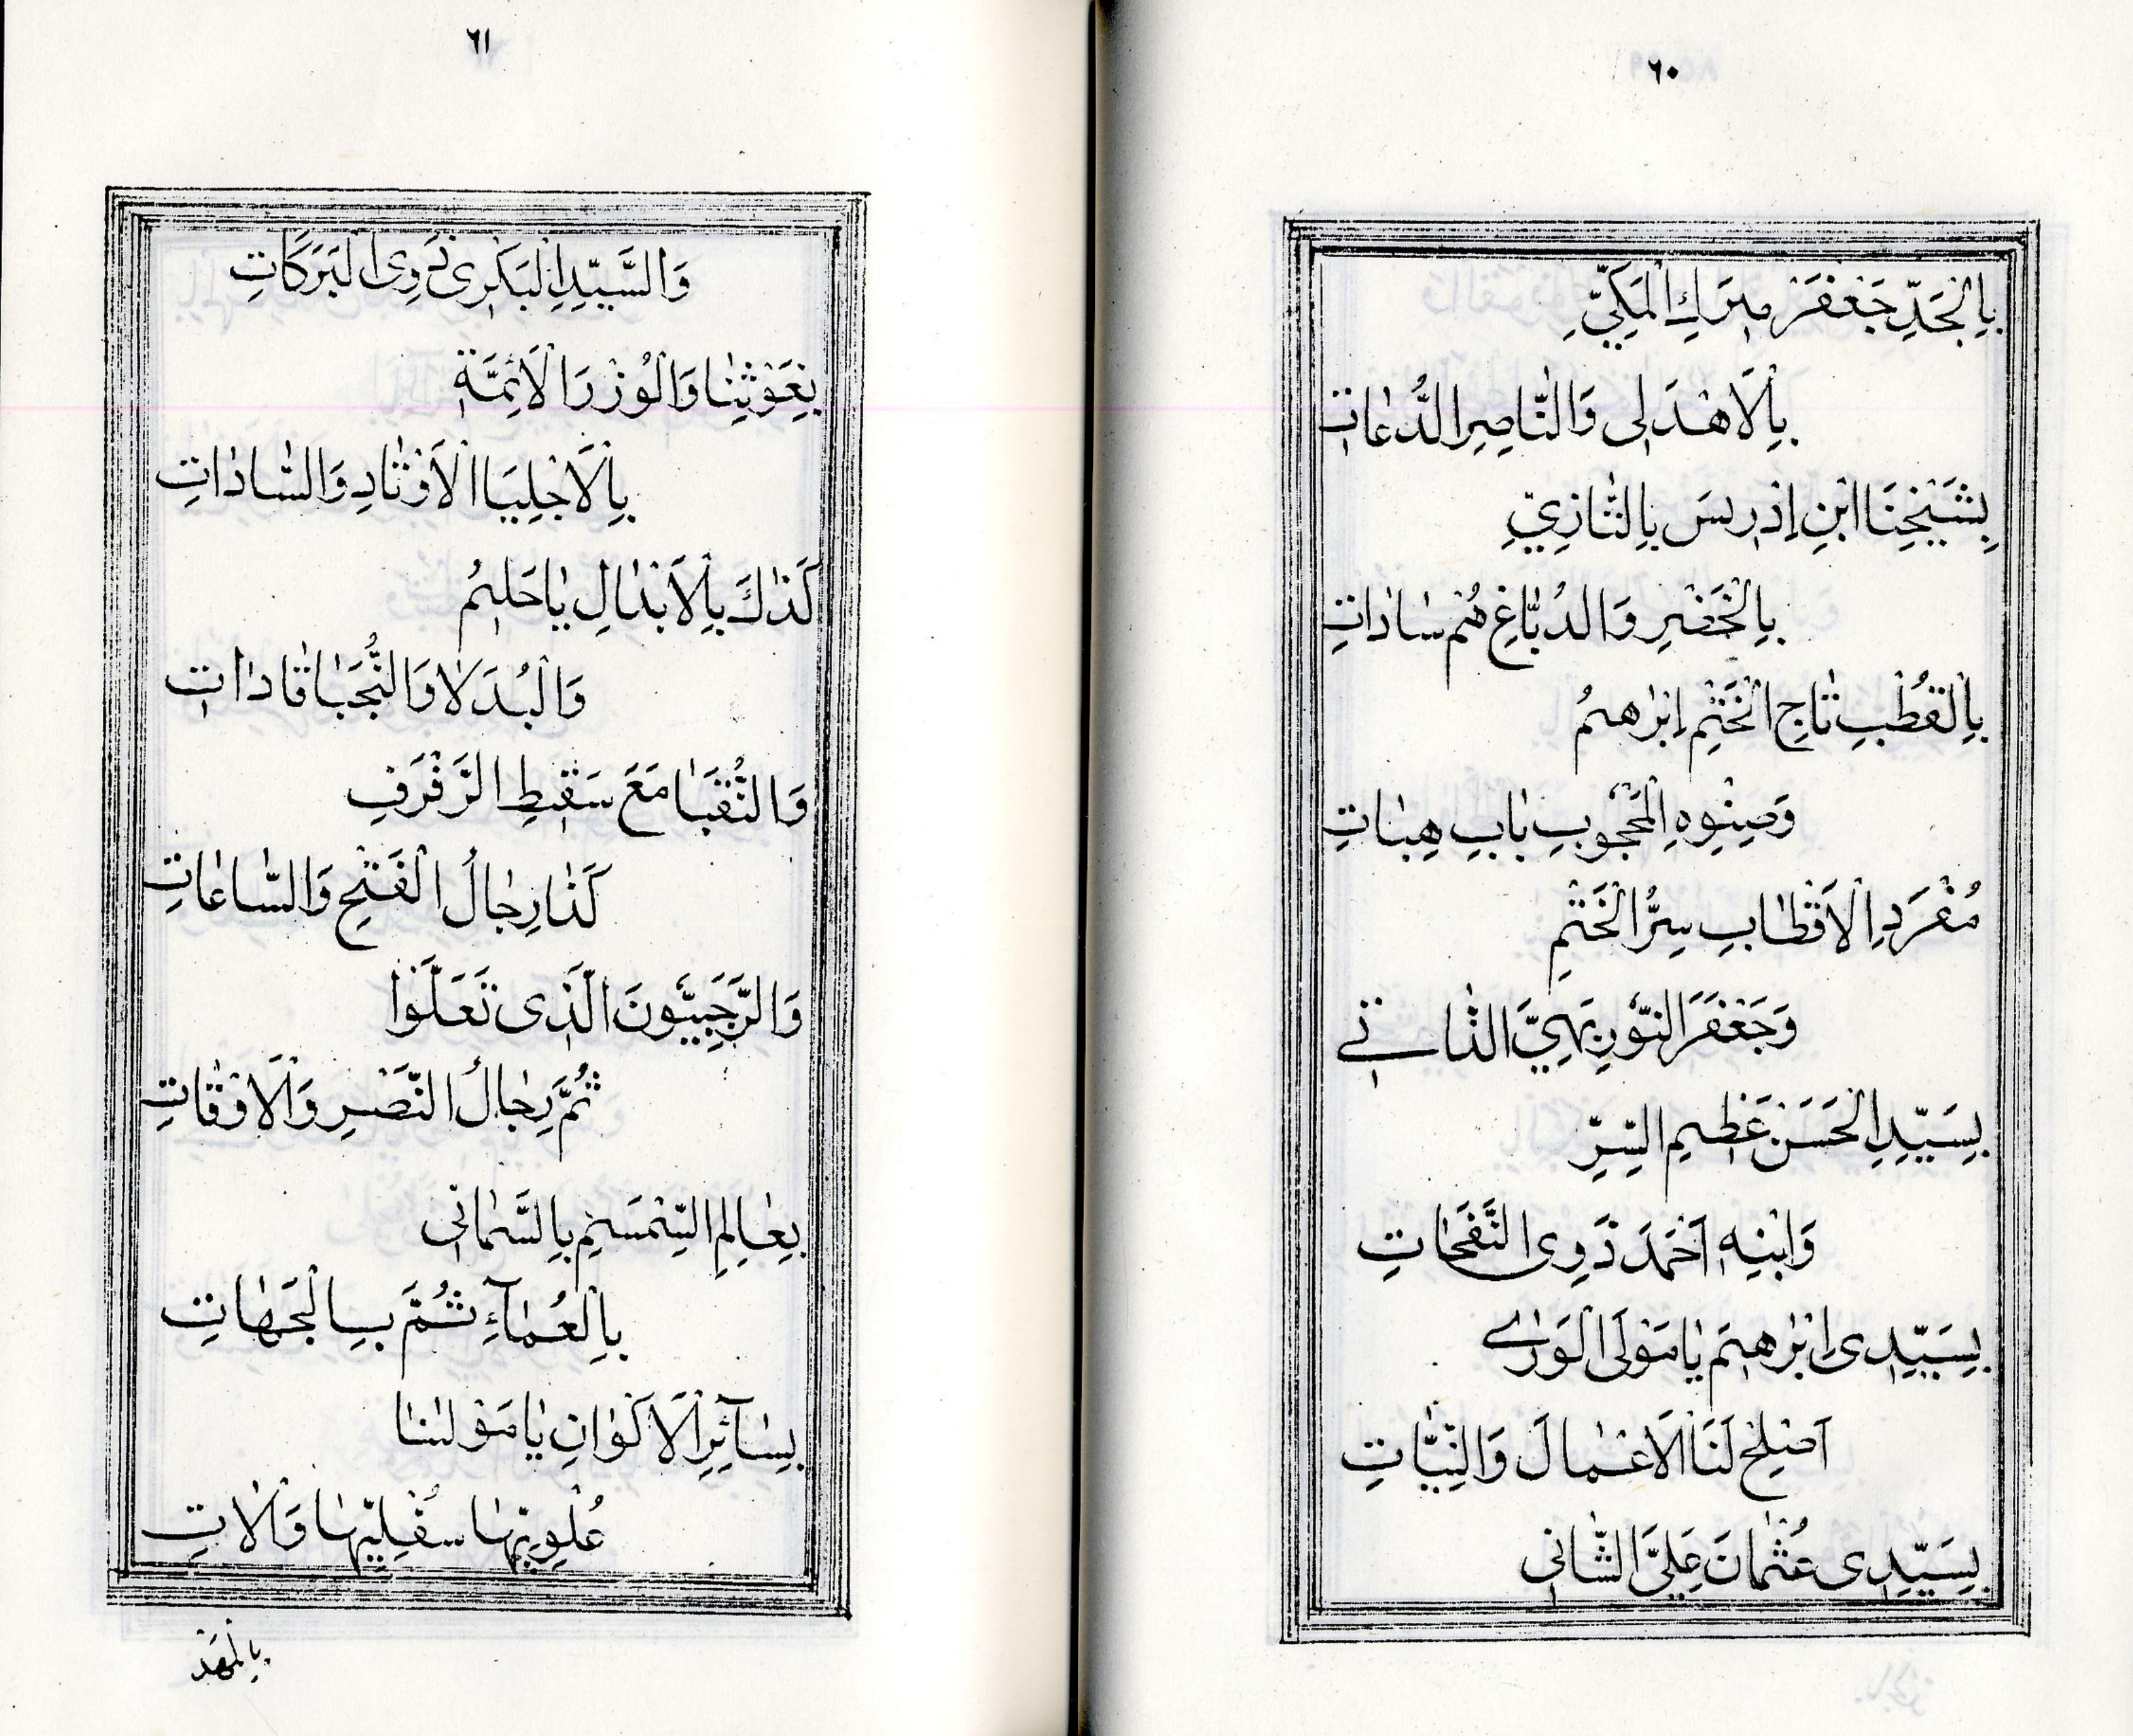 ٦٠
بِالْجَدِّ جَعْفَرْ مِيرَكِ الْمَكِّيِّ
بِالْاَهْدَلِى وَالنَّاصِرِ الدُّعَاتِ
بِشَيْخِنَا ابْنِ اِدْرِيسَ بِالتَّازِيِّ
بِالْخَضْرِ وَالدُبَّاغِ هُمْ سَادَاتِ
بِالْقُطْبِ تَاجِ الْخَتْمِ اِبْرٰهِيمُ
وَصِنْوِهِ الْمَحْجُوبِ بَابِ هِبَاتِ
مُفْرَدِ الْاَقْطَابِ سِرُّ الْخَتْمِ
وَجَعْفَرَ النُّورِ بَهِيَّ الذَّاتِي
بِسَيِّدِ الْحَسَنْ عَظِيمِ السِّرِّ
وَابْنِهِ اَحْمَدَ ذَوِى النَّفَحَاتِ
بِسَيِّدِى اِبْرٰهِيمَ يَا مَوْلَى الْوَرٰى
اَصْلِحْ لَنَا الْاَعْمَالَ وَالنِّيَّاتِ
بِسَيِّدِى عُثْمَانَ عَلِيَّ الشَّانِى
٦١
وَالسَّيِّدِ الْبَكْرِى ذَوِى الْبَرَكَاتِ
بِغَوْثِنَا وَالْوُزْرَا الْاَئِمَّةِ
بِالْاَجْلِيَا الْاَوْتَادِ وَالسَّادَاتِ
كَذَاكَ بِالْاَبْدَالِ يَا حَلِيمُ
وَالْبُدَلَا وَالنُّجَبَا قَادَاتِ
وَالنُّقَبَا مَعَ سَقِيطِ الرَّفْرَفِ
كَذَا رِجَالُ الْفَتْحِ وَالسَّاعَاتِ
وَالرَّجَبِيُّونَ الَّذِى تَعَلَّوْا
ثُمَّ رِجَالُ النَّصْرِ وَالْاَوْقَاتِ
بِعَالِمِ السِّمْسِمِ بِالسَّمَانِى
بِالْعُمَآءِ ثُمَّ بِالْجَهَاتِ
بِسَآئِرِ الْاَكْوَانِ يَا مَوْلٰنَا
عُلْوِيِّهَا سُفْلِيِّهَا وَالَاتِ
بِالْمَهْدِ